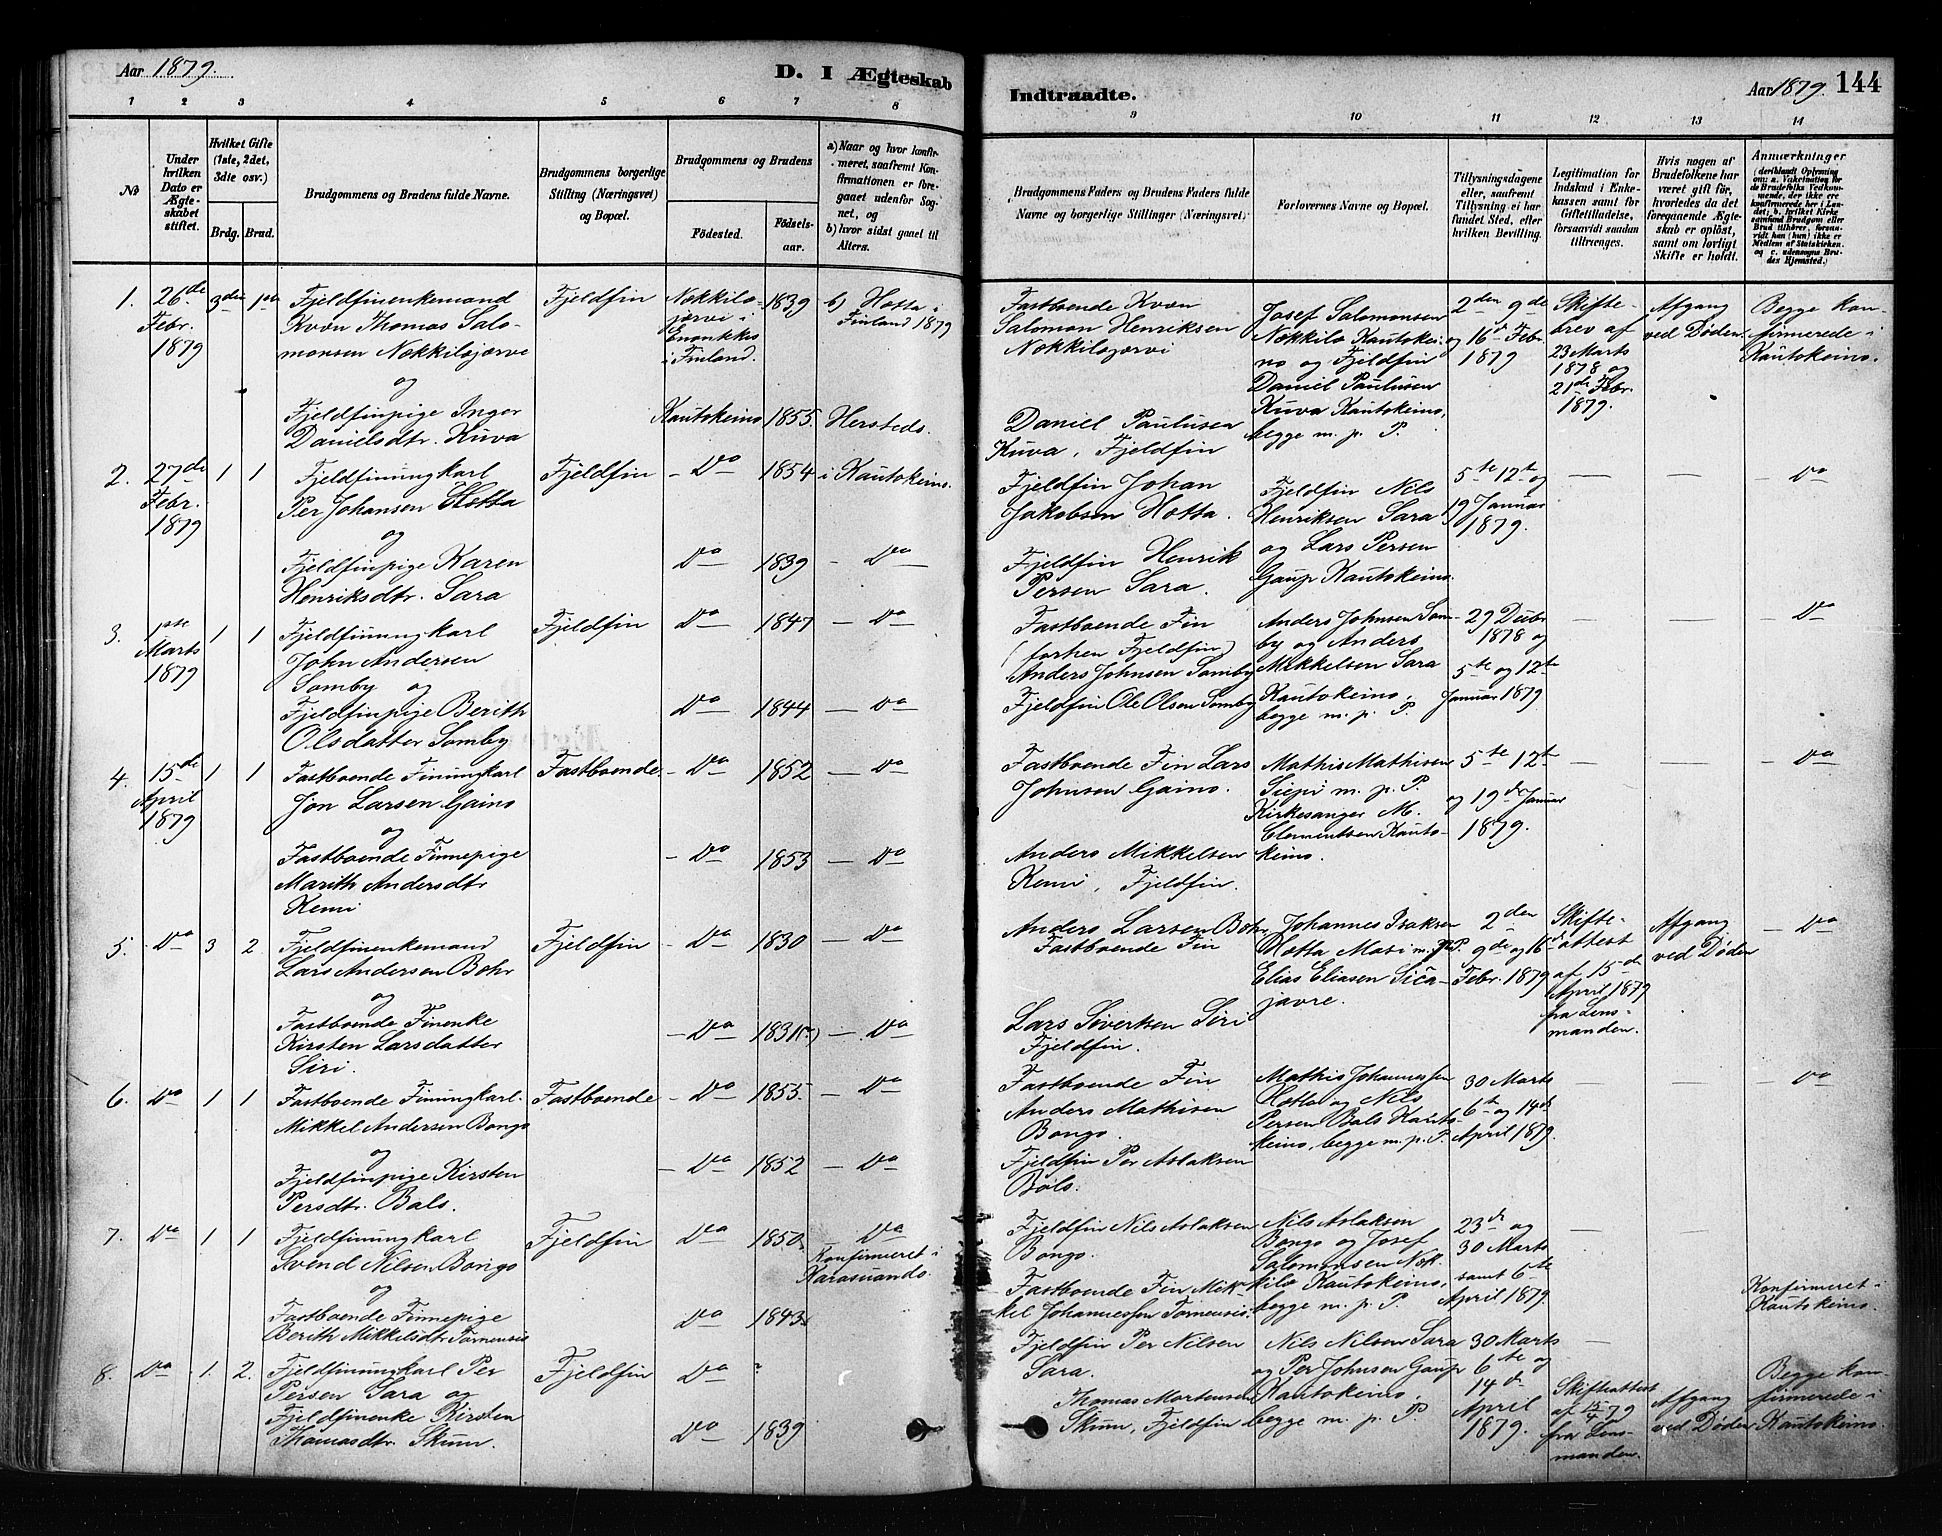 Aar 1879.
D. I Ægteskab
1 2 3 4 5 6 7 8
No
Under hvilken Dato er Ægteskabet stiftet.
Hvilket Gifte (1ste, 2det, 3die osv.)
Brdg. Brud.
Brudgommens og Brudens fulde Navne.
Brudgommens borgerlige Stilling (Næringsvei) og Bopæl.
Brudgommens og Brudens
Födested.
Födselsaar.
a) Naar og hvor konfirmeret, saafremt Konfirmationen er foregaaet udenfor Sognet, og
b) hvor sidst gaaet til Alters.
1. 26de Febr. 1879
3den 1ste
Fjeldfinenkemand
Kvæn Thomas Salo-
monsen Nokkilajærve
og
Fjeldfinpige Inger
Danielsdtr. Kuva
Fjeldfin
Nokkila-
jærvi i
Enontekis
i Finland.
1839
b) Hotta i
Finland 1879
Kautokeino 1855. Hersteds.
2. 27de Febr. 1879
1 1
Fjeldfinungkarl
Per Johansen Hotta
og
Fjeldfinpige Karen
Henriksdtr. Sara
Fjeldfin
Do 1854 i Kautokeino.
Do 1839 Do
3. 1ste Marts 1879
1 1
Fjeldfinungkarl
John Andersen
Somby og
Fjeldfinpige Berith
Olsdatter Somby
Fjeldfin
Do 1847 Do
Do 1844 Do
4. 15de April 1879
1 1
Fastboende Finungkarl
Jon Larsen Gaino
og
Fastboende Finnepige
Marith Andersdtr
Kemi
Fastboende
Do 1852 Do
Do 1853 Do
5. Do 3 2
Fjeldfinenkemand
Lars Andersen Bohr
og
Fastboende Finenke
Kirsten Larsdatter
Siri.
Fjeldfin
Do 1830 Do
Do 1831 Do
6. Do 1 1
Fastboende Finungkarl
Mikkel Andersen Bongo
og
Fjeldfinpige Kirsten
Persdtr. Bals.
Fastboende
Do 1855. Do
Do 1852 Do
7. Do 1 1
Fjeldfinungkarl
Svend Nilsen Bongo
og
Fastboende Finnepige
Berith Mikkelsdtr Torneusis
Fjeldfin
Do 1850. Do
Konfirmeret i
Karasuando.
Do 1843
8. Do 1. 2.
Fjeldfinungkarl Per
Persen Sara og
Fjeldfinenke Kirsten
Thomasdtr. Skum.
Fjeldfin
Do ?
Do 1839
Indtraadte.
Aar 1879. 144
9 10 11 12 13 14
Brudgommens Faders og Brudens Faders fulde Navne og borgerlige Stillinger (Næringsvei).
Forlovernes Navne og Bopæl.
Tillysningsdagene eller, saafremt Tillysning ei har fundet Sted, efter hvilken Bevilling.
Legitimation for Indskud i Enkekassen samt for Giftetilladelse, forsaavidt saadan tiltrænges.
Hvis nogen af Brudefolkene har været gift før, hvorledes da det foregaaende Ægteskab er oplöst, samt om lovligt Skifte er holdt.
Anmærkninger (deriblandt Oplysning om: a. Vakcination for de Brudefolks Vedkommende, der ikke ere konfirmerede her i Landet; b. hvilket Kirkesamfund Brudgom eller Brud tilhörer, forsaavidt han (hun) ikke er Medlem af Statskirken, og c. udensogns Brudes Hjemsted.)
Fastboende Kvæn
Salomon Henriksen
Nokkilajærvi
Daniel Paulusen
Kuva, Fjeldfin
Josef Salomonsen
Nokkila Kautokei-
no og Fjeldfin
Daniel Paulusen
Kuva Kautokeino,
begge m. p. P.
2den 9de
og 16de Febr.
1879
Skifte-
brev af
23 Marts
1878 og
21de Febr.
1879.
Afgang
ved Døden
Begge kon-
firmerede i
Kautokeino.
Fjeldfin Johan
Jakobsen Hotta.
Fjeldfin Henrik
Persen Sara.
Fjeldfin Nils
Henriksen Sara
og Lars Persen
Gaup Kautokeino.
5te 12te og
19 Januar
1879.
Do
Fastboende Fin
(forhen Fjeldfin)
Anders Johnsen Somby
Fjeldfin Ole Olsen Somby
Anders Johnsen Som-
by og Anders
Mikkelsen Sara
Kautokeino,
begge m. p. P.
29 Decbr
1878 og
5te og 12te
Januar 1879
Do
Fastboende Fin Lars
Johnsen Gaino.
Anders Mikkelsen
Kemi, Fjeldfin.
Mathis Mathisen
Siepi m. p. P.
Kirkesanger M.
Clementsen Kauto-
keino.
5te 12te
og 19de Januar
1879.
Do
Anders Larsen Bohr
Fastboende Fin
Lars Sivertsen Siri
Fjeldfin.
Johannes Isaksen
Hotta Masi m. p. P.
Elias Eliasen Siča-
javre.
2den
9de og 16de
Febr. 1879
Skifte-
attest
af 15de
April 1879
fra Lens-
manden.
Afgang
ved Døden
Do
Fastboende Fin
Anders Mathisen
Bongo.
Fjeldfin Per Aslaksen
Bals.
Mathis Johannessen
Hotta og Nils
Persen Bals Kauto-
keino, begge m. p. P.
30 Marts
6te og 14de
April 1879.
Do
Fjeldfin Nils Aslaksen
Bongo.
Fastboende Fin Mik-
kel Johannessen Torneusis.
Nils Aslaksen
Bongo og Josef
Salomonsen Nok-
kila Kautokeino,
begge m. p. P.
23de og
30 Marts
samt 6te
April 1879.
Konfirmeret i
Kautokeino.
Fjeldfin Per Nilsen
Sara.
Thomas Mortensen
Skum, Fjeldfin
Nils Nilsen Sara
og Per Johnsen Gaup
Kautokeino,
begge m. p. P
30 Marts
6te og
14de
April
1879.
Skifteattest
af 15/4 79
fra Lens-
manden.
Afgang
ved Døden
Begge kon-
firmerede i
Kautokeino.